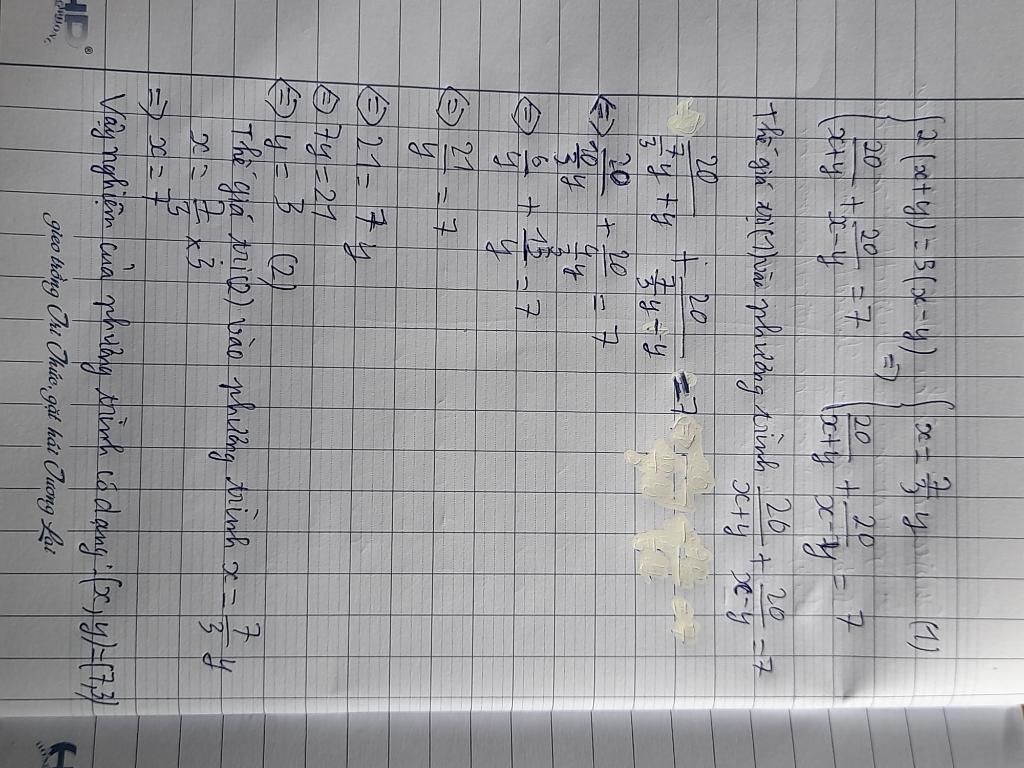 { 2(x+y) = 5(x-y) => { x = 7/3 y (1)
{ 20/(x+y) + 20/(x-y) = 7 { 20/(x+y) + 20/(x-y) = 7
Thế giá trị (1) vào phương trình 20/(x+y) + 20/(x-y) = 7
20/(7/3 y + y) + 20/(7/3 y - y) = 7
<=> 20/(10/3 y) + 20/(4/3 y) = 7
<=> 6/y + 15/y = 7
<=> 21/y = 7
<=> 21 = 7y
<=> 7y = 21
<=> y = 3 (2)
Thế giá trị (2) vào phương trình x = 7/3 y
x = 7/3 x 3
=> x = 7
Vậy nghiệm của phương trình có dạng: (x,y)=(7,3)
gieo trồng Tri Thức, gặt hái Tương Lai
HD®